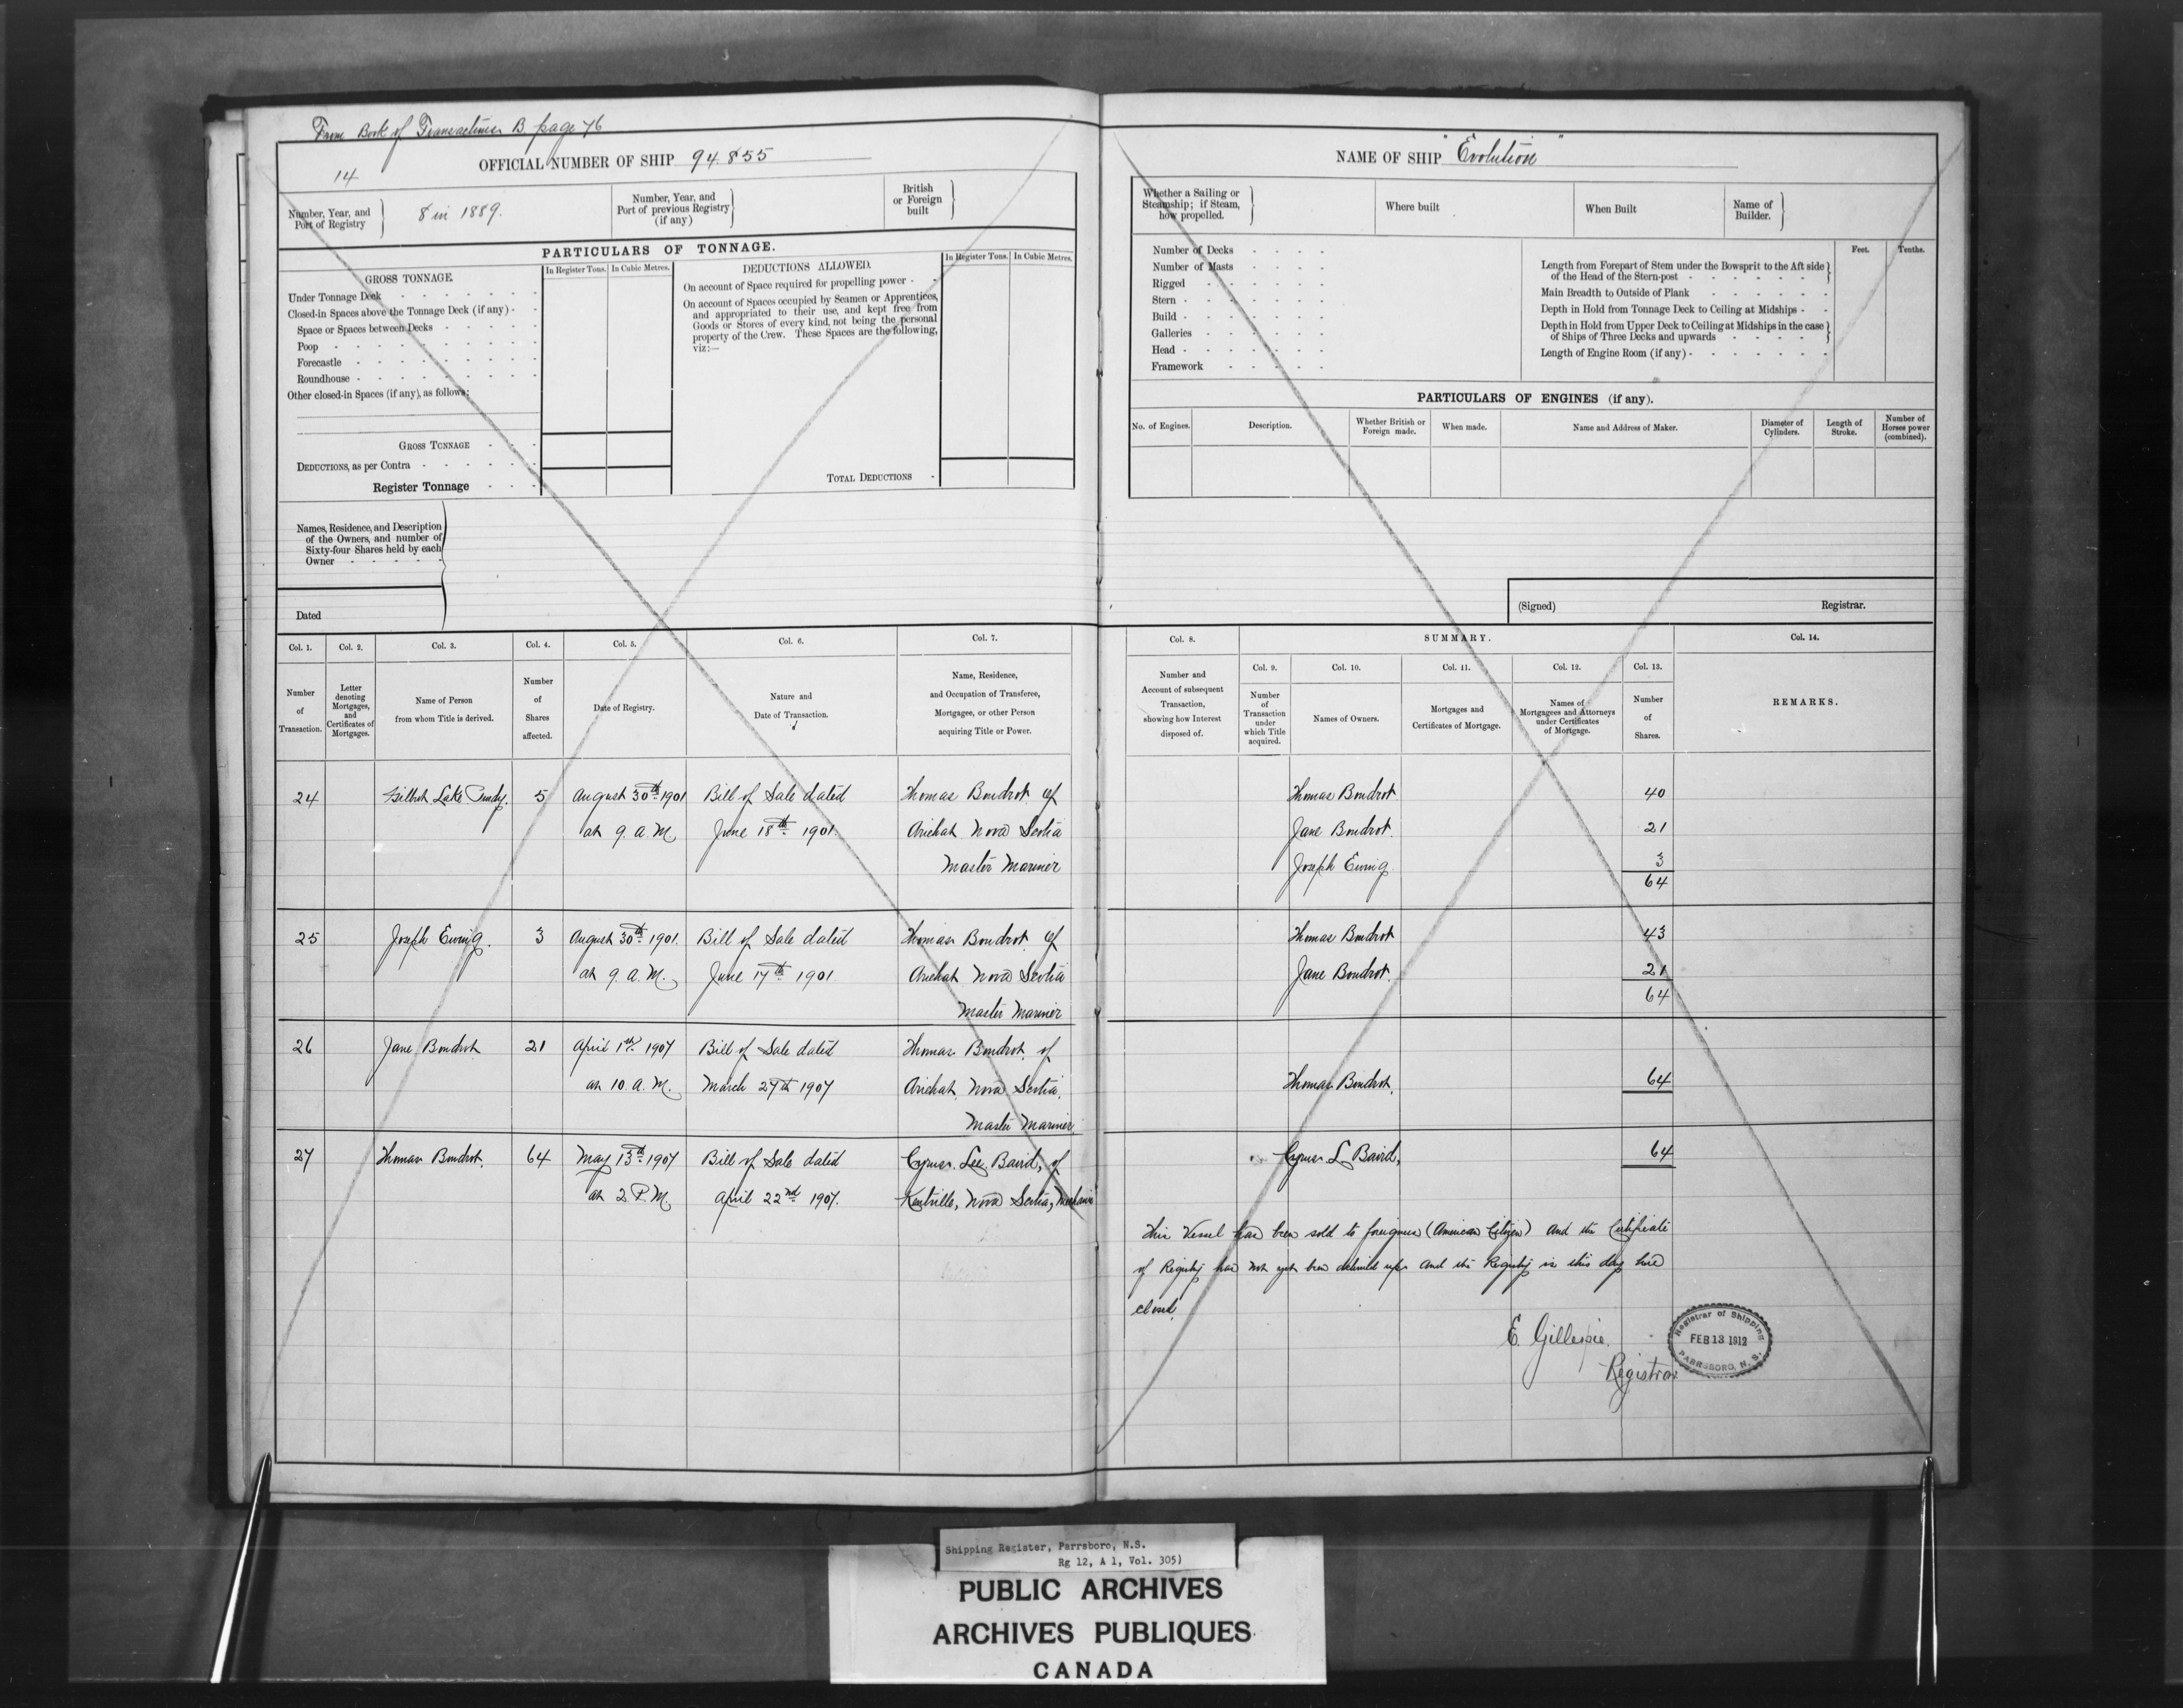 From Book of Transactions B. page 76
14
OFFICIAL NUMBER OF SHIP 94.855
Number, Year, and
Port of Registry
8 in 1889.
Number, Year, and
Port of previous Registry
(if any)
British
or Foreign
built
PARTICULARS OF TONNAGE.
GROSS TONNAGE.
In Register Tons.
In Cubic Metres.
Under Tonnage Deck
Closed-in Spaces above the Tonnage Deck (if any)
Space or Spaces between Decks
Poop
Forecastle
Roundhouse
Other closed-in Spaces (if any), as follows:
GROSS TONNAGE
DEDUCTIONS, as per Contra
Register Tonnage
DEDUCTIONS ALLOWED.
In Register Tons.
In Cubic Metres.
On account of Space required for propelling power
On account of Spaces occupied by Seamen or Apprentices,
and appropriated to their use, and kept free from
Goods or Stores of every kind, not being the personal
property of the Crew. These Spaces are the following,
viz:—
TOTAL DEDUCTIONS
Names, Residence, and Description
of the Owners, and number of
Sixty-four Shares held by each
Owner
Dated
NAME OF SHIP "Evolution"
Whether a Sailing or
Steamship; if Steam,
how propelled.
Where built
When Built
Name of
Builder.
Number of Decks
Number of Masts
Rigged
Stern
Build
Galleries
Head
Framework
Feet.
Tenths.
Length from Forepart of Stem under the Bowsprit to the Aft side
of the Head of the Stern-post
Main Breadth to Outside of Plank
Depth in Hold from Tonnage Deck to Ceiling at Midships
Depth in Hold from Upper Deck to Ceiling at Midships in the case
of Ships of Three Decks and upwards
Length of Engine Room (if any)
PARTICULARS OF ENGINES (if any).
No. of Engines.
Description.
Whether British or
Foreign made.
When made.
Name and Address of Maker.
Diameter of
Cylinders.
Length of
Stroke.
Number of
Horses power
(combined).
(Signed)
Registrar.
Col. 1. Col. 2. Col. 3. Col. 4. Col. 5. Col. 6. Col. 7.
Number
of
Transaction.
Letter
denoting
Mortgages,
and
Certificates of
Mortgages.
Name of Person
from whom Title is derived.
Number
of
Shares
affected.
Date of Registry.
Nature and
Date of Transaction.
Name, Residence,
and Occupation of Transferee,
Mortgagee, or other Person
acquiring Title or Power.
Col. 8.
Number and
Account of subsequent
Transaction,
showing how Interest
disposed of.
SUMMARY.
Col. 9.
Number
of
Transaction
under
which Title
acquired.
Col. 10.
Names of Owners.
Col. 11.
Mortgages and
Certificates of Mortgage.
Col. 12.
Names of
Mortgagees and Attorneys
under Certificates
of Mortgage.
Col. 13.
Number
of
Shares.
Col. 14.
REMARKS.
24 Gilbert Lake Pundy. 5 August 30th 1901 Bill of Sale dated Thomas Boudrot of Thomas Boudrot 40
at 9. a. M. June 18th 1901. Arichat Nova Scotia Jane Boudrot. 21
Master Mariner Joseph Ewing. 3
64
25 Joseph Ewing. 3 August 30th 1901. Bill of Sale dated Thomas Boudrot of Thomas Boudrot 43
at 9. a. M. June 17th 1901 Arichat Nova Scotia Jane Boudrot. 21
Master Mariner 64
26 Jane Boudrot 21 April 1st 1907 Bill of Sale dated Thomas Boudrot of
at 10. a. M. March 27th 1907 Arichat, Nova Scotia. Thomas Boudrot. 64
Master Mariner
27 Thomas Boudrot. 64 May 13th 1907 Bill of Sale dated Cyrus Lee Baird, of Cyrus L Baird, 64
at 2 P. M. April 22nd 1907. Kentville, Nova Scotia,
This Vessel has been sold to foreigners (American Citizen) and the Certificate
of Registry has not yet been delivered up and the Registry is this day here
closed.
E. Gillespie.
Registrar
Registrar of Shipping
FEB 13 1912
PARRSBORO, N. S.
Shipping Register, Parrsboro, N.S.
Rg 12, A 1, Vol. 305)
PUBLIC ARCHIVES
ARCHIVES PUBLIQUES
CANADA